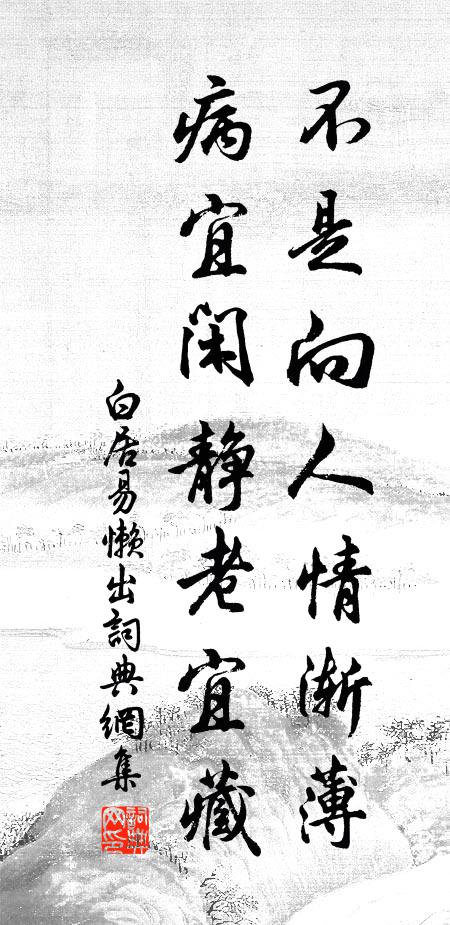 不是向人情渐薄
病宜闲静老宜藏
白居易懒出詞典網集
詞典网印